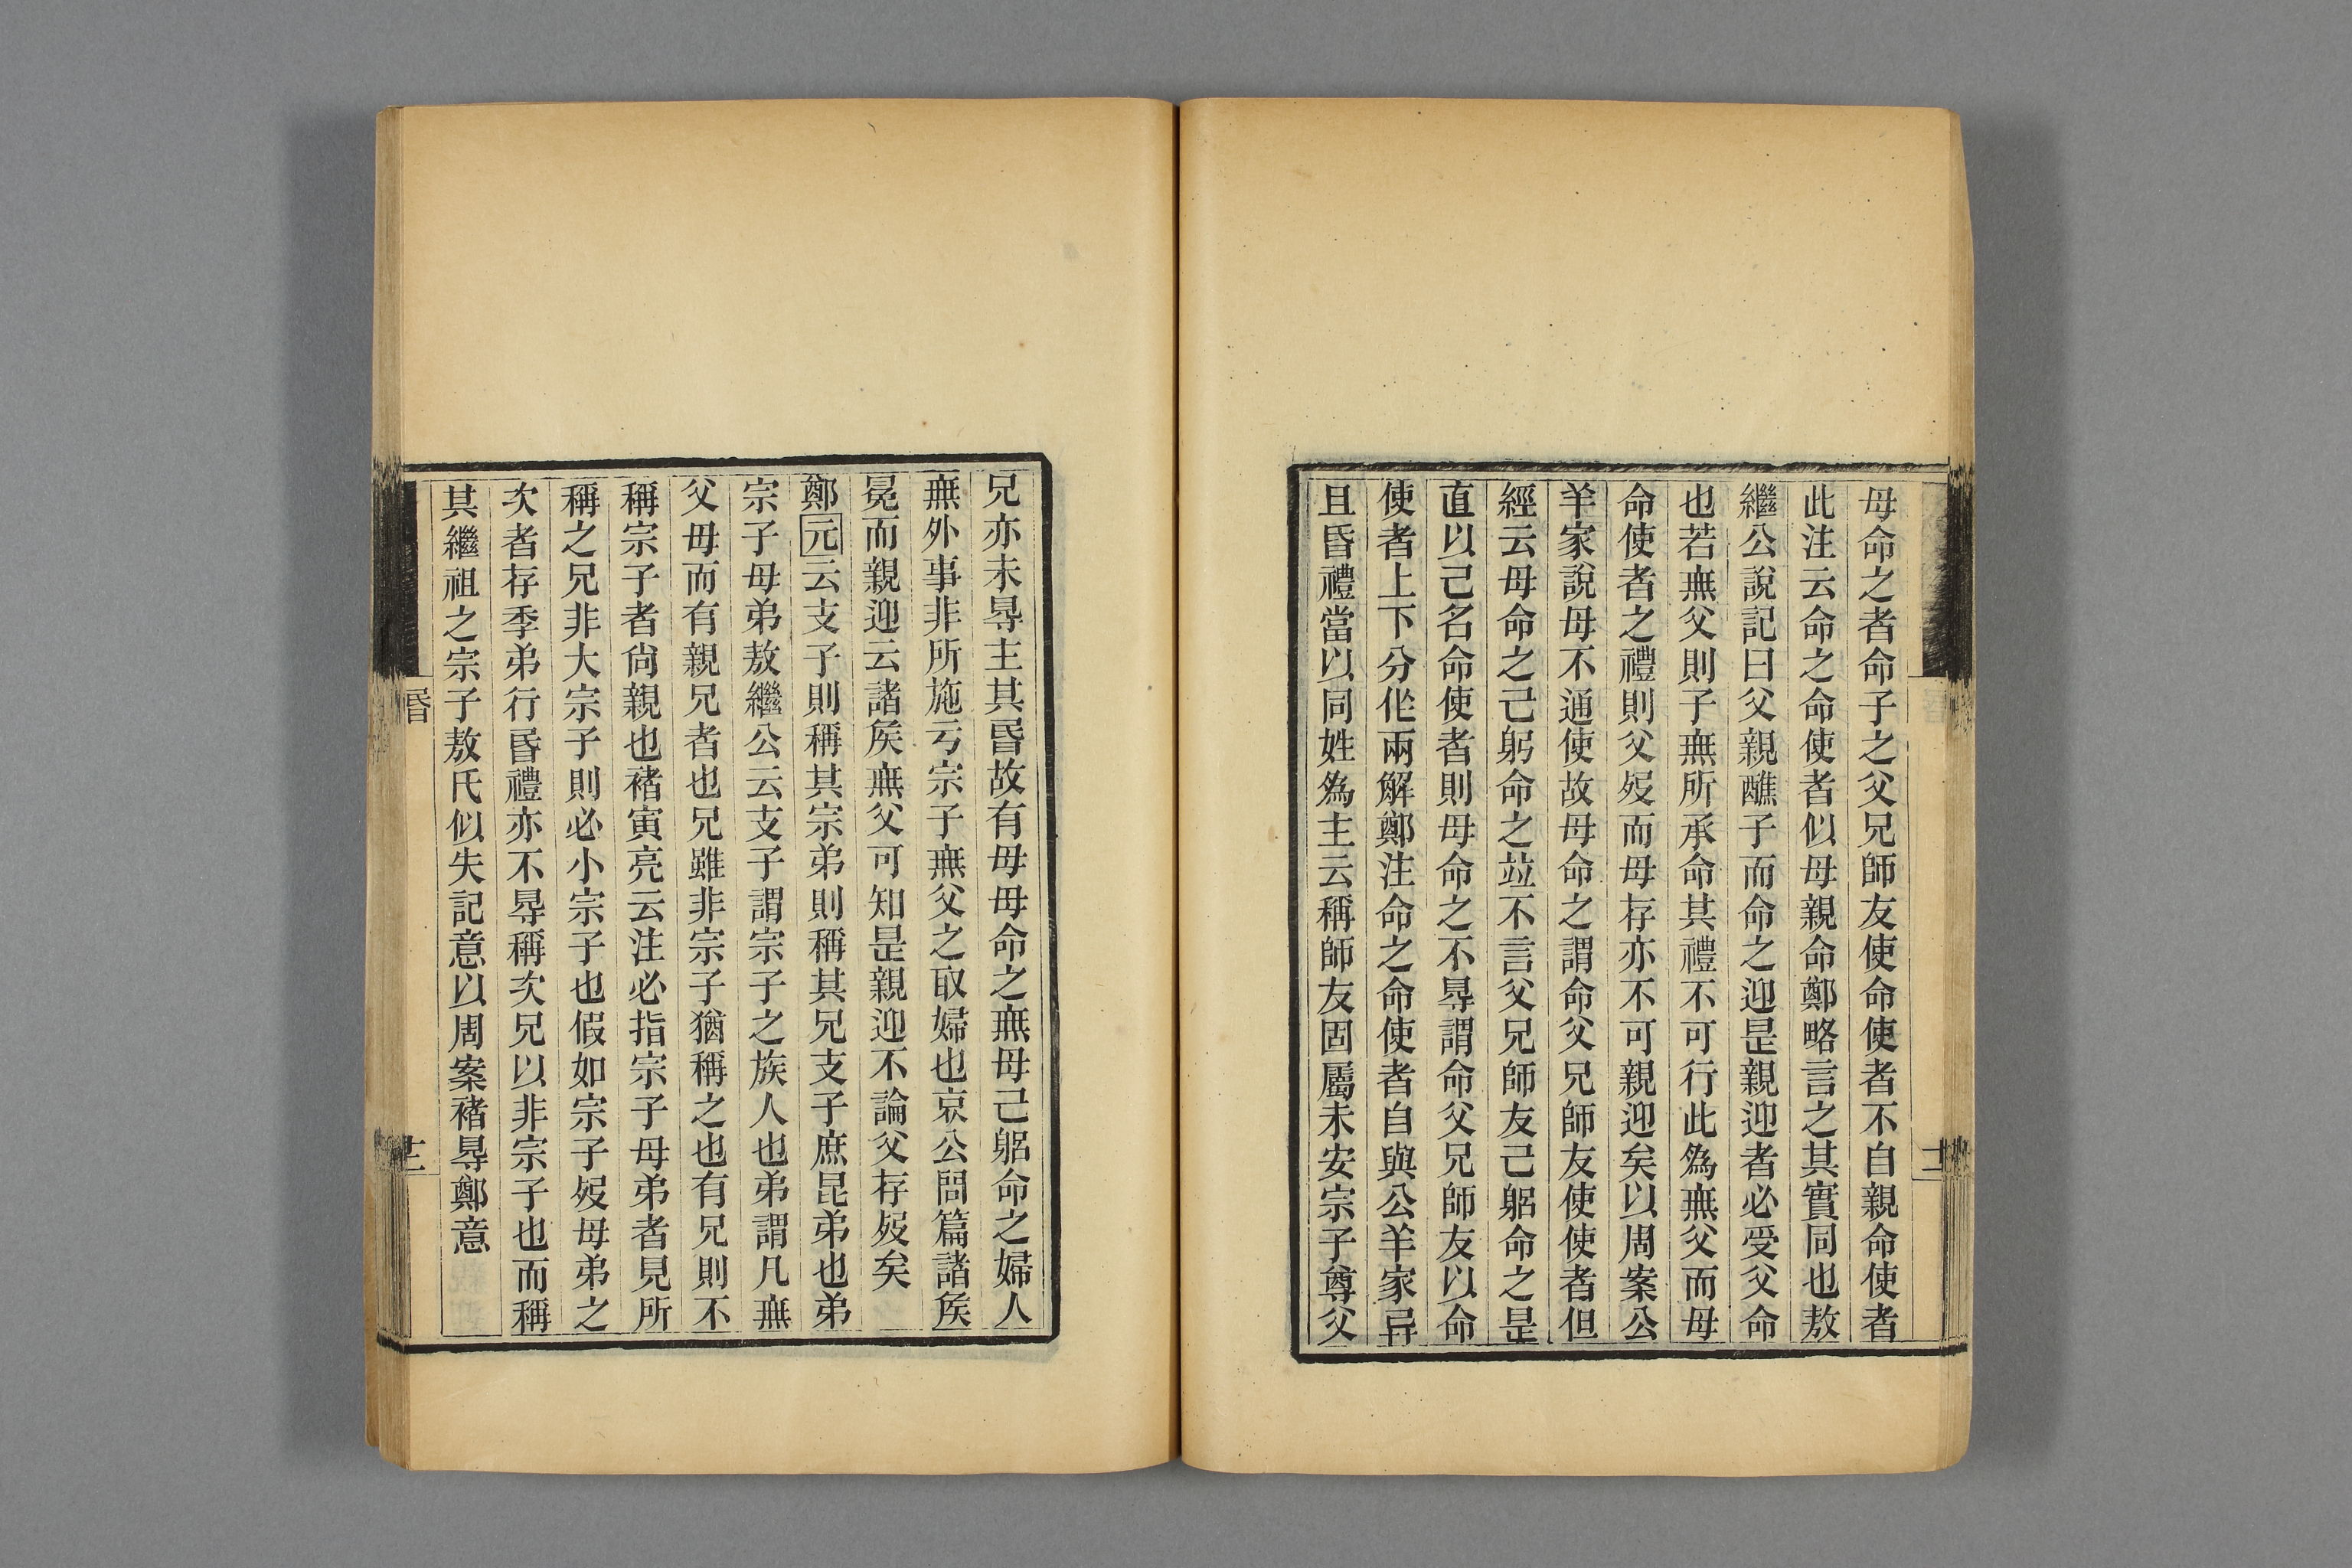 母命之者命子之父兄師友使命使者不自親命使者
此注云命之命使者似母親命鄭略言之其實同也敖
繼公說記曰父親醮子而命之迎是親迎者必受父命
也若無父則子無所承命其禮不可行此為無父而母
命使者之禮則父歿而母存亦不可親迎矣以周案公
羊家說母不通使故母命之謂命父兄師友使使者但
經云母命之己躬命之竝不言父兄師友己躳命之是
直以己名命使者則母命之不㝵謂命父兄師友以命
使者上下分作兩解鄭注命之命使者自與公羊家異
且昏禮當以同姓為主云稱師友固屬未安宗子尊父
兄亦未㝵主其昏故有母母命之無母己躳命之婦人
無外事非所施亏宗子無父之取婦也哀公問篇諸矦
冕而親迎云諸矦無父可知是親迎不論父存歿矣
鄭元云支子則稱其宗弟則稱其兄支子庶昆弟也弟
宗子母弟敖繼公云支子謂宗子之族人也弟謂凡無
父母而有親兄者也兄雖非宗子猶稱之也有兄則不
稱宗子者尙親也褚寅亮云注必指宗子母弟者見所
稱之兄非大宗子則必小宗子也假如宗子歿母弟之
次者存季弟行昏禮亦不㝵稱次兄以非宗子也而稱
其繼祖之宗子敖氏似失記意以周案褚㝵鄭意
昏
十二